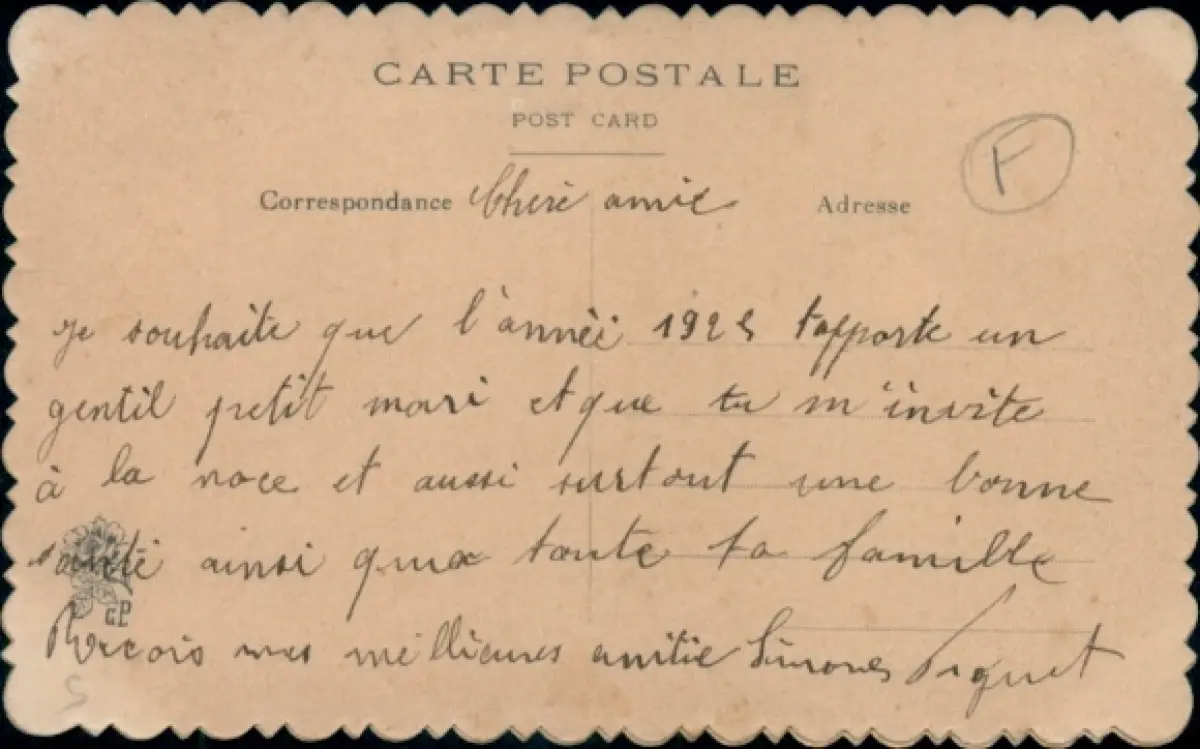 CARTE POSTALE
POST CARD
F
Correspondance Cheré amie Adresse
je souhaite que l'année 1925 t'apporte un
gentil petit mari et que tu m'invite
à la noce et aussi surtout une bonne
santé ainsi qua toute ta famille
CP
Recois mes meillieures amitie Simones Piguet
S